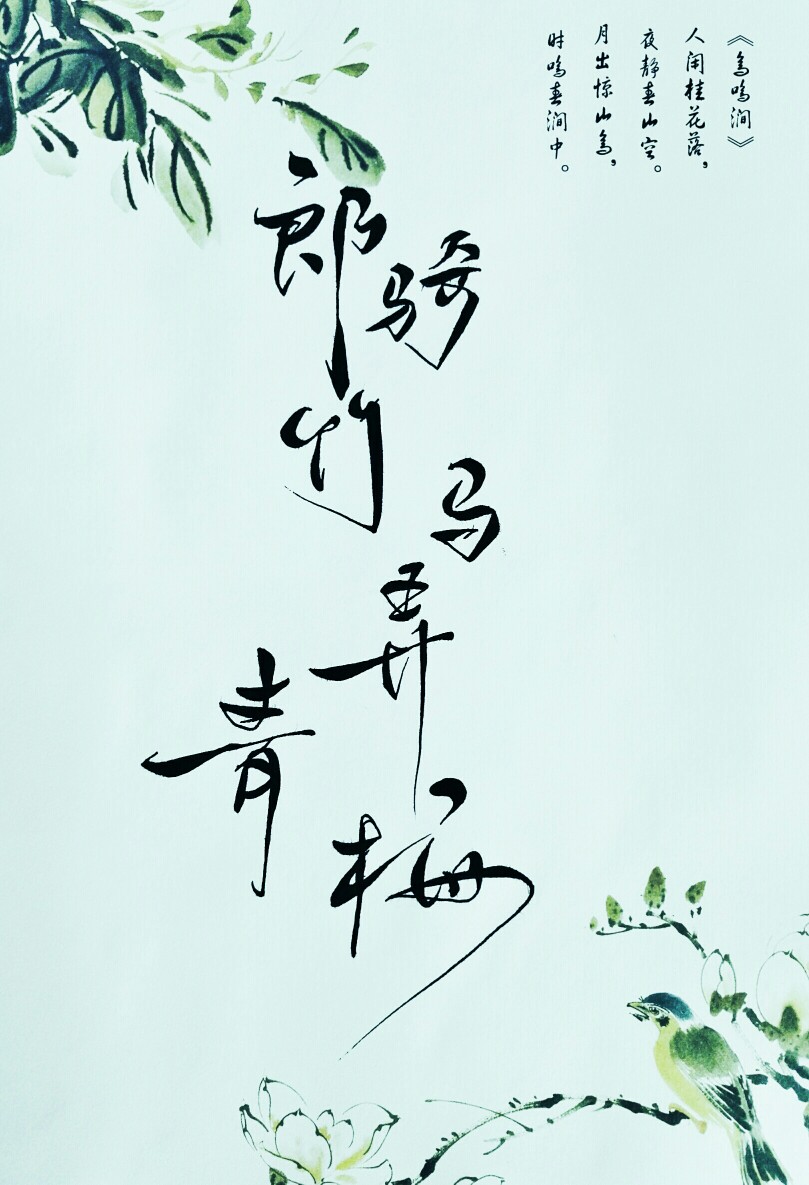 《鸟鸣涧》
人闲桂花落，
夜静春山空。
月出惊山鸟，
时鸣春涧中。
郎骑竹马弄青梅